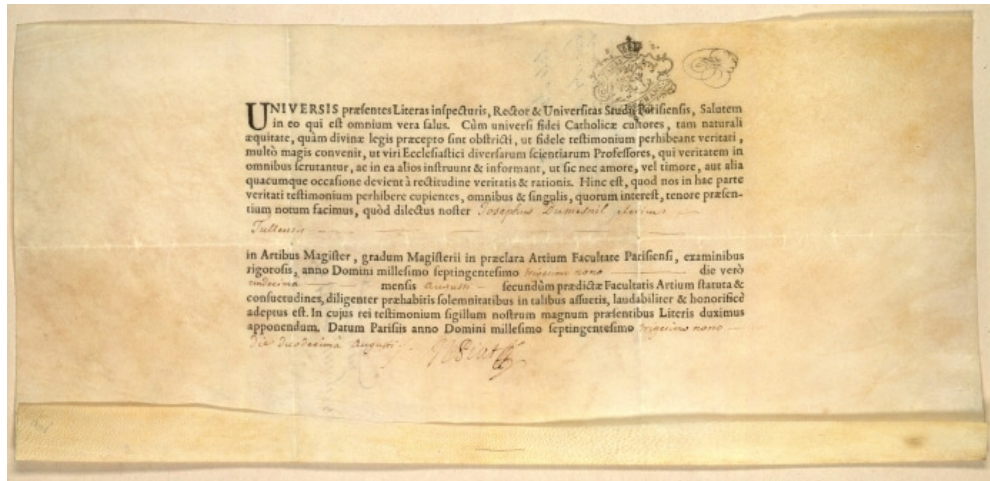 UNIVERSIS præsentes Literas inspecturis, Rector & Universitas Studii Parisiensis, Salutem
in eo qui est omnium vera salus. Cùm universi fidei Catholicæ cultores, tam naturali
æquitate, quàm divinæ legis præcepto sint obstricti, ut fidele testimonium perhibeant veritati,
multò magis convenit, ut viri Ecclesiastici diversarum scientiarum Professores, qui veritatem in
omnibus scrutantur, ac in ea alios instruunt & informant, ut sic nec amore, vel timore, aut alia
quacumque occasione devient à rectitudine veritatis & rationis. Hinc est, quod nos in hac parte
veritati testimonium perhibere cupientes, omnibus & singulis, quorum interest, tenore præsen-
tium notum facimus, quòd dilectus noster Josephus Dumesnil clericus
Tullensis
in Artibus Magister, gradum Magisterii in præclara Artium Facultate Parisiensi, examinibus
rigorosis, anno Domini millesimo septingentesimo trigesimo nono die verò
undecima mensis augusti secundùm prædictæ Facultatis Artium statuta &
consuetudines, diligenter præhabitis solemnitatibus in talibus assuetis, laudabiliter & honorificè
adeptus est. In cujus rei testimonium sigillum nostrum magnum præsentibus Literis duximus
apponendum. Datum Parisiis anno Domini millesimo septingentesimo trigesimo nono
die duodecimâ augusti